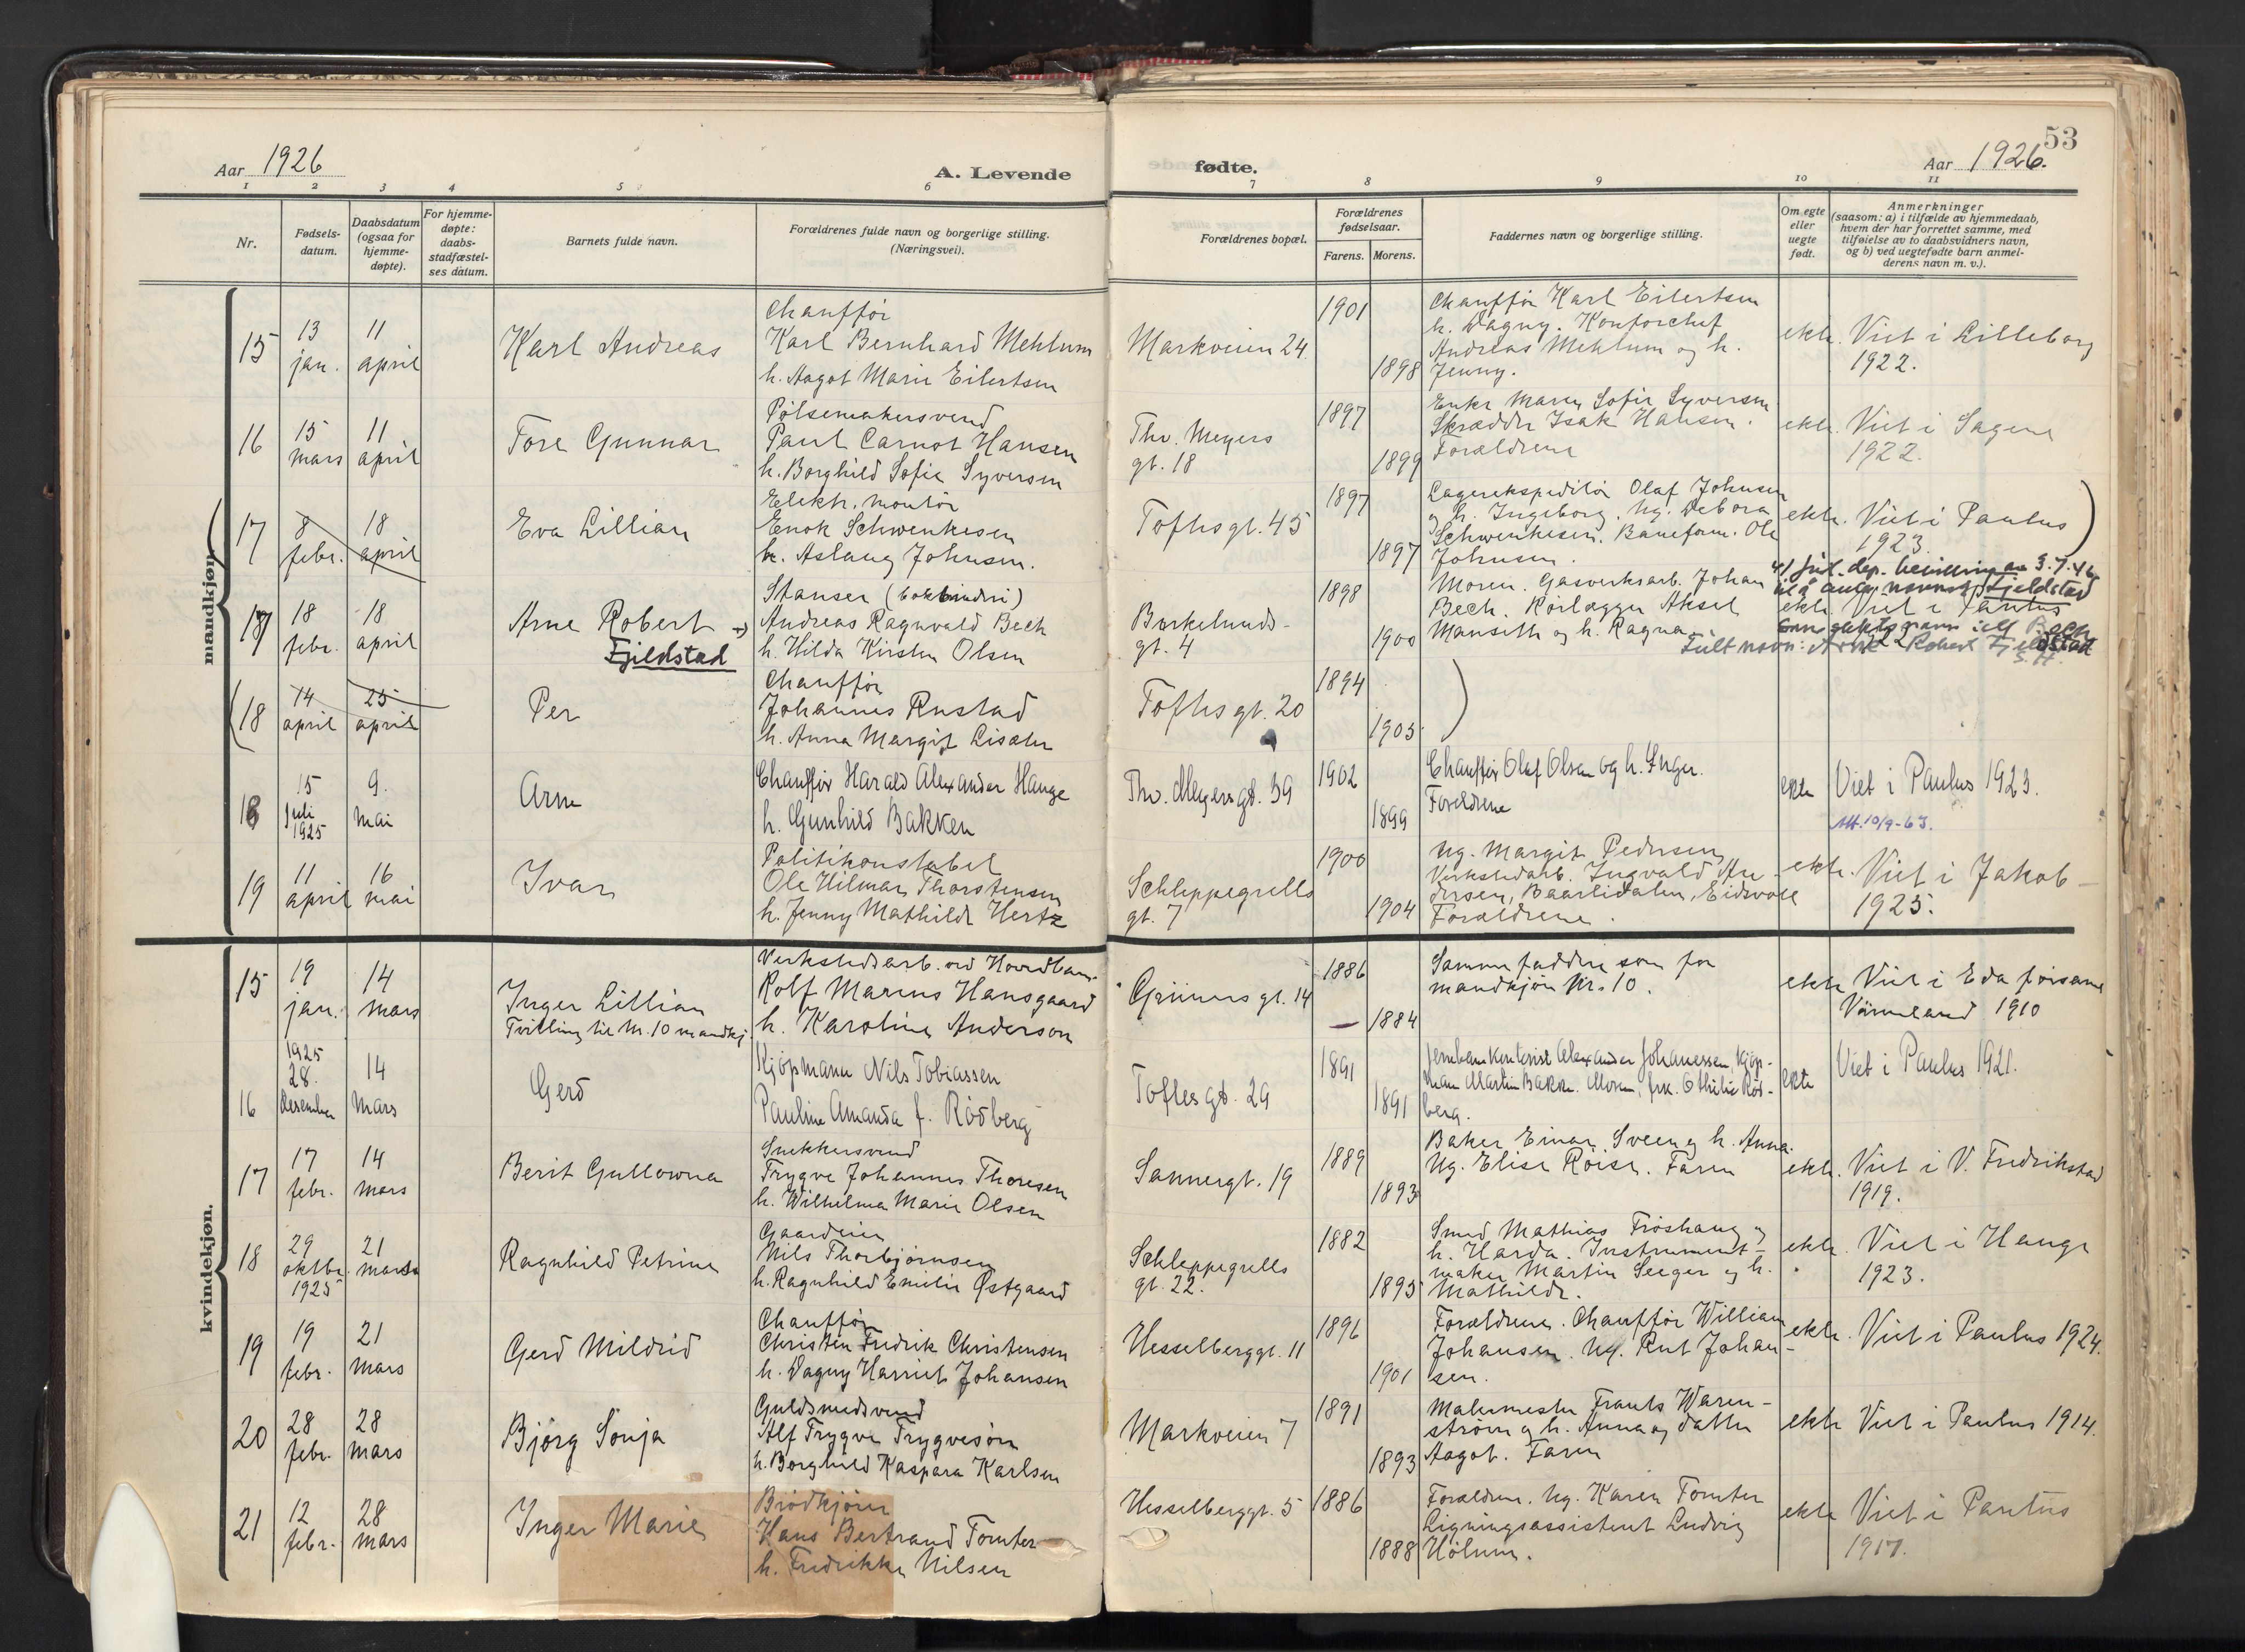 53
Aar 1926
A. Levende
fødte.
Aar 1926.
1 2 3 4 5 6 7 8 9 10 11
Nr.
Fødsels-
datum.
Daabsdatum
(ogsaa for
hjemme-
døpte).
For hjemme-
døpte:
daabs-
stadfæstel-
ses datum.
Barnets fulde navn.
Forældrenes fulde navn og borgerlige stilling.
(Næringsvei).
Forældrenes bopæl.
Forældrenes
fødselsaar.
Farens. Morens.
Faddernes navn og borgerlige stilling.
Om egte
eller
uegte
født.
Anmerkninger
(saasom: a) i tilfælde av hjemmedaab,
hvem der har forrettet samme, med
tilføielse av to daabsvidners navn,
og b) ved uegtefødte barn anmel-
derens navn m. v.).
mandkjøn.
15
13
jan.
11
april
Karl Andreas
Chauffør
Karl Bernhard Mehlum
h. Aagot Marie Eilertsen
Markveien 24
1901
1898
Chauffør Karl Eilertsen
h. Dagny. Kontorchef
Andreas Mehlum og h.
Jenny.
ekte.
Viet i Lilleborg
1922.
16
15
mars
11
april
Tore Gunnar
Pølsemakersvend
Paul Carnot Hansen
h. Borghild Sofie Syversen
Thv. Meyers
gt. 18
1897
1899
Enke Maren Sofie Syversen
Skrædder Isak Hansen.
Forældrene
ekte.
Viet i Sagene
1922.
17
8
febr.
18
april
Eva Lillian
Elektr. montør
Enok Schwenkesen
h. Aslaug Johnsen.
Toftesgt. 45
1897
1897
Lagerekspeditør Olaf Johnsen
og h. Ingeborg. Ug. Debora
Schwenkesen. Baneform. Ole
Johnsen.
ekte.
Viet i Paulus
1923.
17
18
febr.
18
april
Arne Robert
Fjeldstad
Stanser (bokbinderi)
Andreas Ragnvald Bech
h. Hilda Kirsten Olsen
Birkelunds-
gt. 4
1898
1900
Moren. Gasverksarb. Johan
Bech. Rørlægger Aksel
Mansith og h. Ragna.
ekte. Viet i Paulus
Just. dep. bevilling av 3.7.46
Fjeldstad
Fullt navn: Arne Robert Fjeldstad
18
14
april
25
april
Per
Chauffør
Johannes Rustad
h. Anna Margit Lisæter
Toftesgt. 20
1894
1905
18
15
Juli
1925
9.
mai
Arne
Chauffør Harald Alexander Hauge
h. Gunhild Bakken
Thv. Meyersgt. 39
1902
1899
Chauffør Olaf Olsen og h. Inger.
Foreldrene
ekte
Viet i Paulus 1923.
Att. 10/9-63.
19
11
april
16
mai
Ivar
Politikonstabel
Ole Hilmar Thorstensen
h. Jenny Mathilde Hertz
Schleppegrells
gt. 7
1900
1904
Ug. Margit Pedersen
Verkstedarb. Ingvald An-
dersen, Baarlidalen, Eidsvoll
Forældrene.
ekte.
Viet i Jakob
1925.
kvindekjøn.
15
19
jan.
14
mars
Inger Lillian
Tvilling til Nr. 10 mandkj.
Verkstedsarb. ved Hovedban.
Rolf Marius Hansgaard
h. Karoline Anderson
Grüners gt. 14
1886
1884
Samme faddere som for
mandkjøn Nr. 10.
ekte
Viet i Eda församl
Värmland 1910
16
1925
28.
Desember
14
Mars
Gerd
Kjøpmann Nils Tobiassen
Pauline Amanda f. Rødberg
Toftesgt. 29
1891
1891
Jernbankontorist Alexander Johanessen, Kjøp-
man Martin Bakke. Moren, frk. Othilie Rød-
berg.
ekte
Viet i Paulus 1921.
17
17
febr.
14
mars
Berit Gullowna
Snekkersvend
Trygve Johannes Thoresen
h. Wilhelma Marie Olsen
Sannergt. 19
1889
1893
Baker Einar Sveen og h. Anna.
Ug. Elise Røise. Faren
ekte.
Viet i V. Fredrikstad
1919.
18
29
oktbr.
1925
21
mars
Ragnhild Petrine
Gaardeier
Nils Thorbjørnsen
h. Ragnhild Emilie Østgaard
Schleppegrells
gt. 22.
1882
1895
Smed Mathias Frøshaug og
h. Harda. Instrument-
maker Martin Seeger og h.
Mathilde.
ekte.
Viet i Hauge
1923.
19
19
febr.
21
mars
Gerd Mildrid
Chauffør
Christen Fredrik Christensen
h. Dagny Harriet Johansen
Hesselberggt. 11
1896
1901
Forældrene. Chauffør William
Johansen. Ug. Rut Johan-
sen.
ekte.
Viet i Paulus 1924.
20
28
febr.
28
mars
Bjørg Sonja
Guldsmedsvend
Alf Trygve Trygvesøn
h. Borghild Kaspara Karlsen
Markveien 7
1891
1893
Malermester Frants Waren-
strøm og h. Anna og datter
Aagot. Faren
ekte
Viet i Paulus 1914.
21
12
febr.
28
mars
Inger Marie
Brødkjører
Hans Bertrand Tomter
h. Fredrikke Nilsen
Hesselberggt. 5
1886
1888
Forældrene. Ug. Karen Tomter
Ligningsassistent Ludvig
Holum.
ekte
Viet i Paulus
1917.